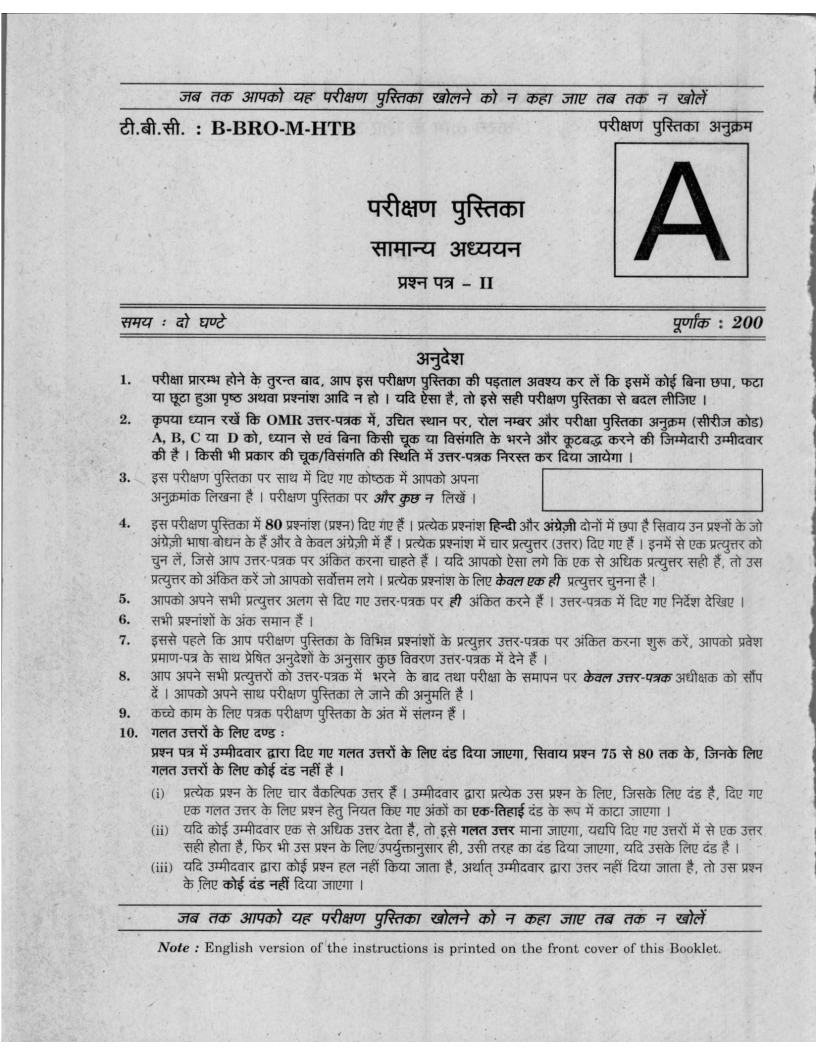 जब तक आपको यह परीक्षण पुस्तिका खोलने को न कहा जाए तब तक न खोलें
टी.बी.सी. : B-BRO-M-HTB
परीक्षण पुस्तिका अनुक्रम
A
परीक्षण पुस्तिका
सामान्य अध्ययन
प्रश्न पत्र – II
समय : दो घण्टे
पूर्णांक : 200
अनुदेश
1. परीक्षा प्रारम्भ होने के तुरन्त बाद, आप इस परीक्षण पुस्तिका की पड़ताल अवश्य कर लें कि इसमें कोई बिना छपा, फटा
या छूटा हुआ पृष्ठ अथवा प्रश्नांश आदि न हो । यदि ऐसा है, तो इसे सही परीक्षण पुस्तिका से बदल लीजिए ।
2. कृपया ध्यान रखें कि OMR उत्तर-पत्रक में, उचित स्थान पर, रोल नम्बर और परीक्षा पुस्तिका अनुक्रम (सीरीज कोड)
A, B, C या D को, ध्यान से एवं बिना किसी चूक या विसंगति के भरने और कूटबद्ध करने की जिम्मेदारी उम्मीदवार
की है । किसी भी प्रकार की चूक/विसंगति की स्थिति में उत्तर-पत्रक निरस्त कर दिया जायेगा ।
3. इस परीक्षण पुस्तिका पर साथ में दिए गए कोष्ठक में आपको अपना
अनुक्रमांक लिखना है । परीक्षण पुस्तिका पर और कुछ न लिखें ।
4. इस परीक्षण पुस्तिका में 80 प्रश्नांश (प्रश्न) दिए गए हैं । प्रत्येक प्रश्नांश हिन्दी और अंग्रेज़ी दोनों में छपा है सिवाय उन प्रश्नों के जो
अंग्रेज़ी भाषा बोधन के हैं और वे केवल अंग्रेज़ी में हैं । प्रत्येक प्रश्नांश में चार प्रत्युत्तर (उत्तर) दिए गए हैं । इनमें से एक प्रत्युत्तर को
चुन लें, जिसे आप उत्तर-पत्रक पर अंकित करना चाहते हैं । यदि आपको ऐसा लगे कि एक से अधिक प्रत्युत्तर सही हैं, तो उस
प्रत्युत्तर को अंकित करें जो आपको सर्वोत्तम लगे । प्रत्येक प्रश्नांश के लिए केवल एक ही प्रत्युत्तर चुनना है ।
5. आपको अपने सभी प्रत्युत्तर अलग से दिए गए उत्तर-पत्रक पर ही अंकित करने हैं । उत्तर-पत्रक में दिए गए निर्देश देखिए ।
6. सभी प्रश्नांशों के अंक समान हैं ।
7. इससे पहले कि आप परीक्षण पुस्तिका के विभिन्न प्रश्नांशों के प्रत्युत्तर उत्तर-पत्रक पर अंकित करना शुरू करें, आपको प्रवेश
प्रमाण-पत्र के साथ प्रेषित अनुदेशों के अनुसार कुछ विवरण उत्तर-पत्रक में देने हैं ।
8. आप अपने सभी प्रत्युत्तरों को उत्तर-पत्रक में भरने के बाद तथा परीक्षा के समापन पर केवल उत्तर-पत्रक अधीक्षक को सौंप
दें । आपको अपने साथ परीक्षण पुस्तिका ले जाने की अनुमति है ।
9. कच्चे काम के लिए पत्रक परीक्षण पुस्तिका के अंत में संलग्न हैं ।
10. गलत उत्तरों के लिए दण्ड :
प्रश्न पत्र में उम्मीदवार द्वारा दिए गए गलत उत्तरों के लिए दंड दिया जाएगा, सिवाय प्रश्न 75 से 80 तक के, जिनके लिए
गलत उत्तरों के लिए कोई दंड नहीं है ।
(i) प्रत्येक प्रश्न के लिए चार वैकल्पिक उत्तर हैं । उम्मीदवार द्वारा प्रत्येक उस प्रश्न के लिए, जिसके लिए दंड है, दिए गए
एक गलत उत्तर के लिए प्रश्न हेतु नियत किए गए अंकों का एक-तिहाई दंड के रूप में काटा जाएगा ।
(ii) यदि कोई उम्मीदवार एक से अधिक उत्तर देता है, तो इसे गलत उत्तर माना जाएगा, यद्यपि दिए गए उत्तरों में से एक उत्तर
सही होता है, फिर भी उस प्रश्न के लिए उपर्युक्तानुसार ही, उसी तरह का दंड दिया जाएगा, यदि उसके लिए दंड है ।
(iii) यदि उम्मीदवार द्वारा कोई प्रश्न हल नहीं किया जाता है, अर्थात् उम्मीदवार द्वारा उत्तर नहीं दिया जाता है, तो उस प्रश्न
के लिए कोई दंड नहीं दिया जाएगा ।
जब तक आपको यह परीक्षण पुस्तिका खोलने को न कहा जाए तब तक न खोलें
Note : English version of the instructions is printed on the front cover of this Booklet.